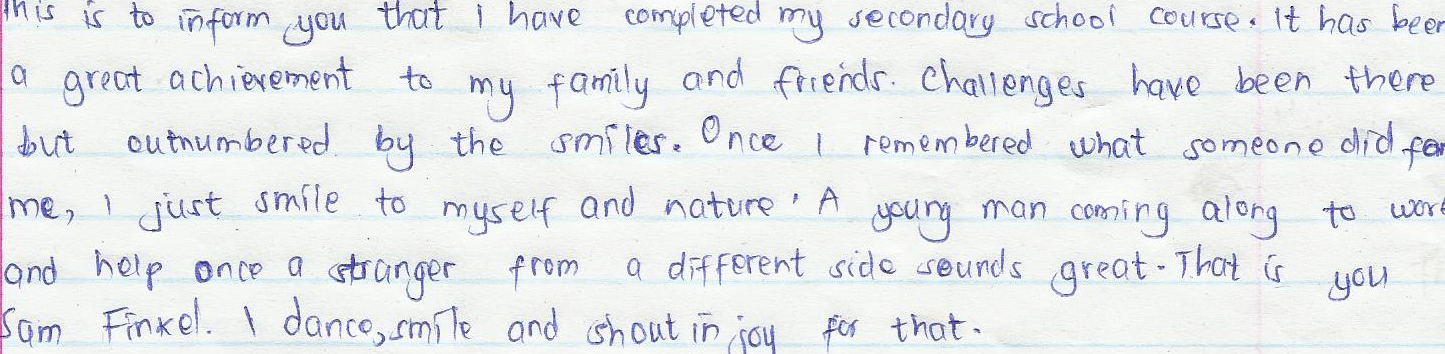 This is to inform you that I have completed my secondary school course. It has been
a great achievement to my family and friends. Challenges have been there
but outnumbered by the smiles. Once I remembered what someone did for
me, I just smile to myself and nature. A young man coming along to work
and help once a stranger from a different side sounds great. That is you
Sam Finkel. I dance, smile and shout in joy for that.